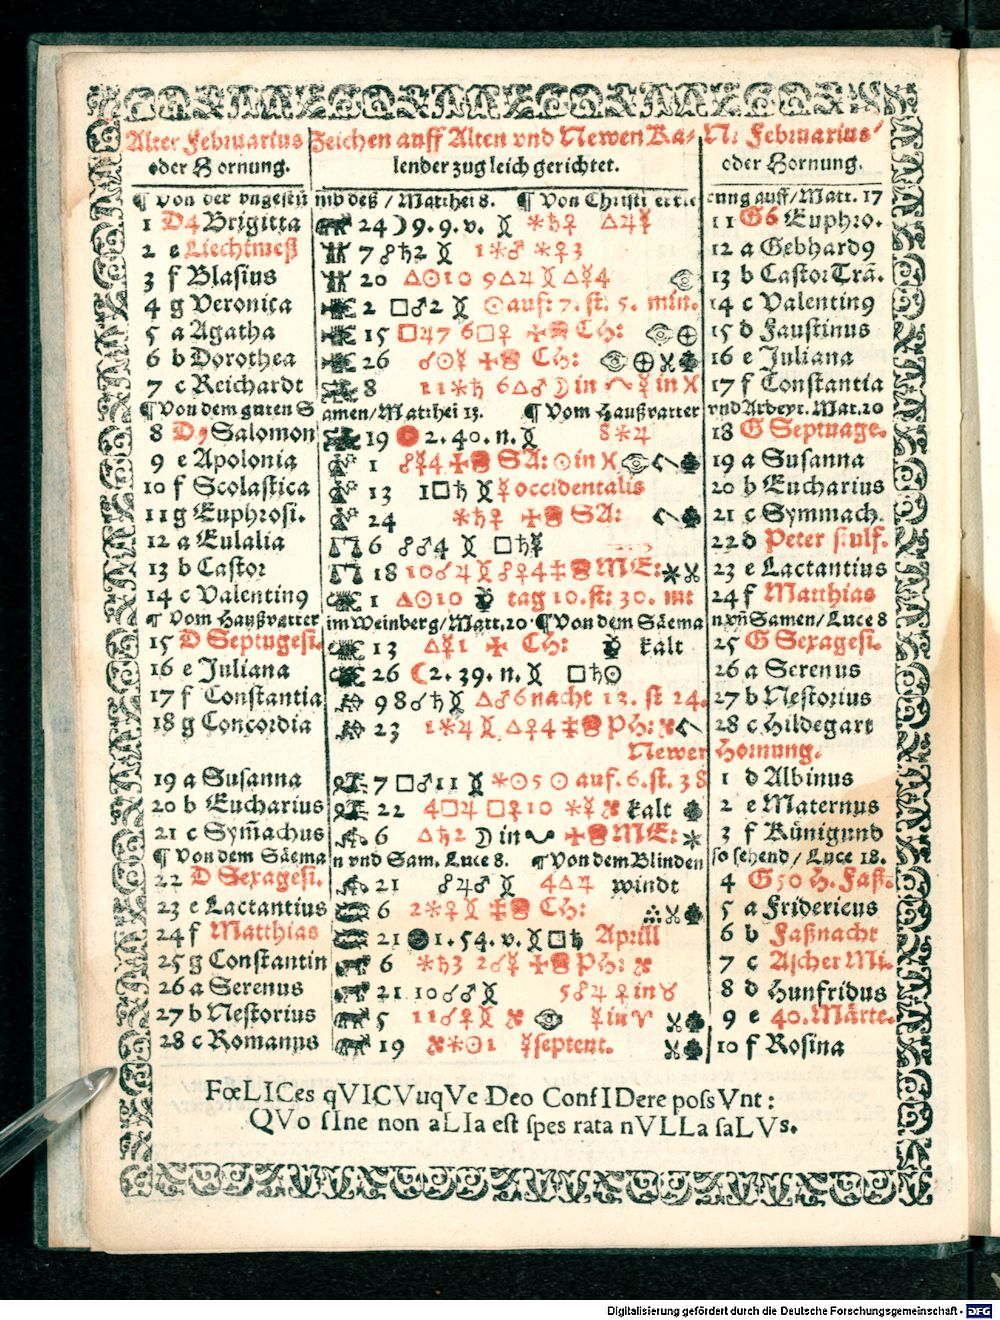 Alter Februarius Zeichen auff Alten vnd Newen Ka- N: Februarius
oder Hornung. lender zug leich gerichtet. oder Hornung.
¶ Von der vngestü mb deß / Matthei 8. ¶ Von Christi errte cnung auff/Matt. 17
1 D4 Brigitta 24 ☽ 9. 9. v. ☿ ⚹ ♄ ♀ △ ♃ ☿ 11 G6 Euphro.
2 e Liechtmeß 7 ☍ ♄ 2 1 ⚹ ♂ ⚹ ♀ 3 12 a Gebhard9
3 f Blasius 20 △ ☉ 10 9 △ ♃ △ ☿ 4 13 b Castor Trã.
4 g Veronica 2 □ ♂ 2 ☉ auf: 7. st. 5. min. 14 c Valentin9
5 a Agatha 15 □ 4 7 6 □ ♀ CH: 15 d Faustinus
6 b Dorothea 26 ☌ ☉ ☿ CH: 16 e Juliana
7 c Reichardt 8 11 ⚹ ♄ 6 △ ♂ ☽ in ☿ in 17 f Constantia
¶ Von dem guten S amen/Matthei 13. ¶ Vom Haußvatter vnd Arbeyt. Mat. 20
8 D9 Salomon 19 2. 40. n. 8 ⚹ ♃ 18 G Septuage.
9 e Apolonia 1 ☍ ☿ 4 SA: ☉ in 19 a Susanna
10 f Scolastica 13 1 □ ♄ ☿ occidentalis 20 b Eucharius
11 g Euphrosi. 24 ⚹ ♄ ♀ SA: 21 c Symmach.
12 a Eulalia 6 ☍ ♂ 4 □ ♄ ☿ 22 d Peter stulf.
13 b Castor 18 10 ☌ ♃ ☍ ♀ 4 ME: 23 e Lactantius
14 c Valentin9 1 △ ☉ 10 tag 10. st: 30. mt 24 f Matthias
¶ Vom Haußvetter im Weinberg/Matt. 20 · ¶ Von dem Säema n vñ Samen/Luce 8
15 D Septugesi. 13 △ ☿ 1 CH: kalt 25 G Sexagesi.
16 e Juliana 26 ☾ 2. 39. n. □ ♄ ☉ 26 a Serenus
17 f Constantia 9 98 ☌ ♄ △ ♂ 6 nacht 13. st 24. 27 b Nestorius
18 g Concordia 23 1 ⚹ ♃ △ ♀ 4 PH: 28 c Hildegart
Newer Hornung.
19 a Susanna 7 □ ♂ 11 ⚹ ☉ 5 ☉ auf. 6. st. 38 1 d Albinus
20 b Eucharius 22 4 □ ♃ □ ♀ 10 ⚹ ☿ kalt 2 e Maternus
21 c Sym̃achus 6 △ ♄ 2 ☽ in ME: 3 f Künigund
¶ Von dem Säema n vnd Sam. Luce 8. ¶ Von dem Blinden so sehend / Luce 18.
22 D Sexagesi. 21 ☍ ♃ ♂ 4 △ ♃ windt 4 G 50 H. Fast.
23 e Lactantius 6 2 ⚹ ♀ CH: 5 a Fridericus
24 f Matthias 21 1. 54. v. □ ♄ Aprill 6 b Faßnacht
25 g Constantin 6 ⚹ ♄ 3 2 ☌ ☿ PH: 7 c Ascher Mi.
26 a Serenus 21 10 ☌ ♂ 5 ☍ ♃ ♀ in ♉ 8 d Hunfridus
27 b Nestorius 5 11 ☌ ♀ ☿ in ♈ 9 e 40. Märte.
28 c Romanus 19 ⚹ ☉ 1 ☿ septent. 10 f Rosina
FœLICes qVICVuqVe Deo ConfIDere possVnt:
QVo sIne non aLIa est spes rata nVLLa saLVs.
Digitalisierung gefördert durch die Deutsche Forschungsgemeinschaft - DFG